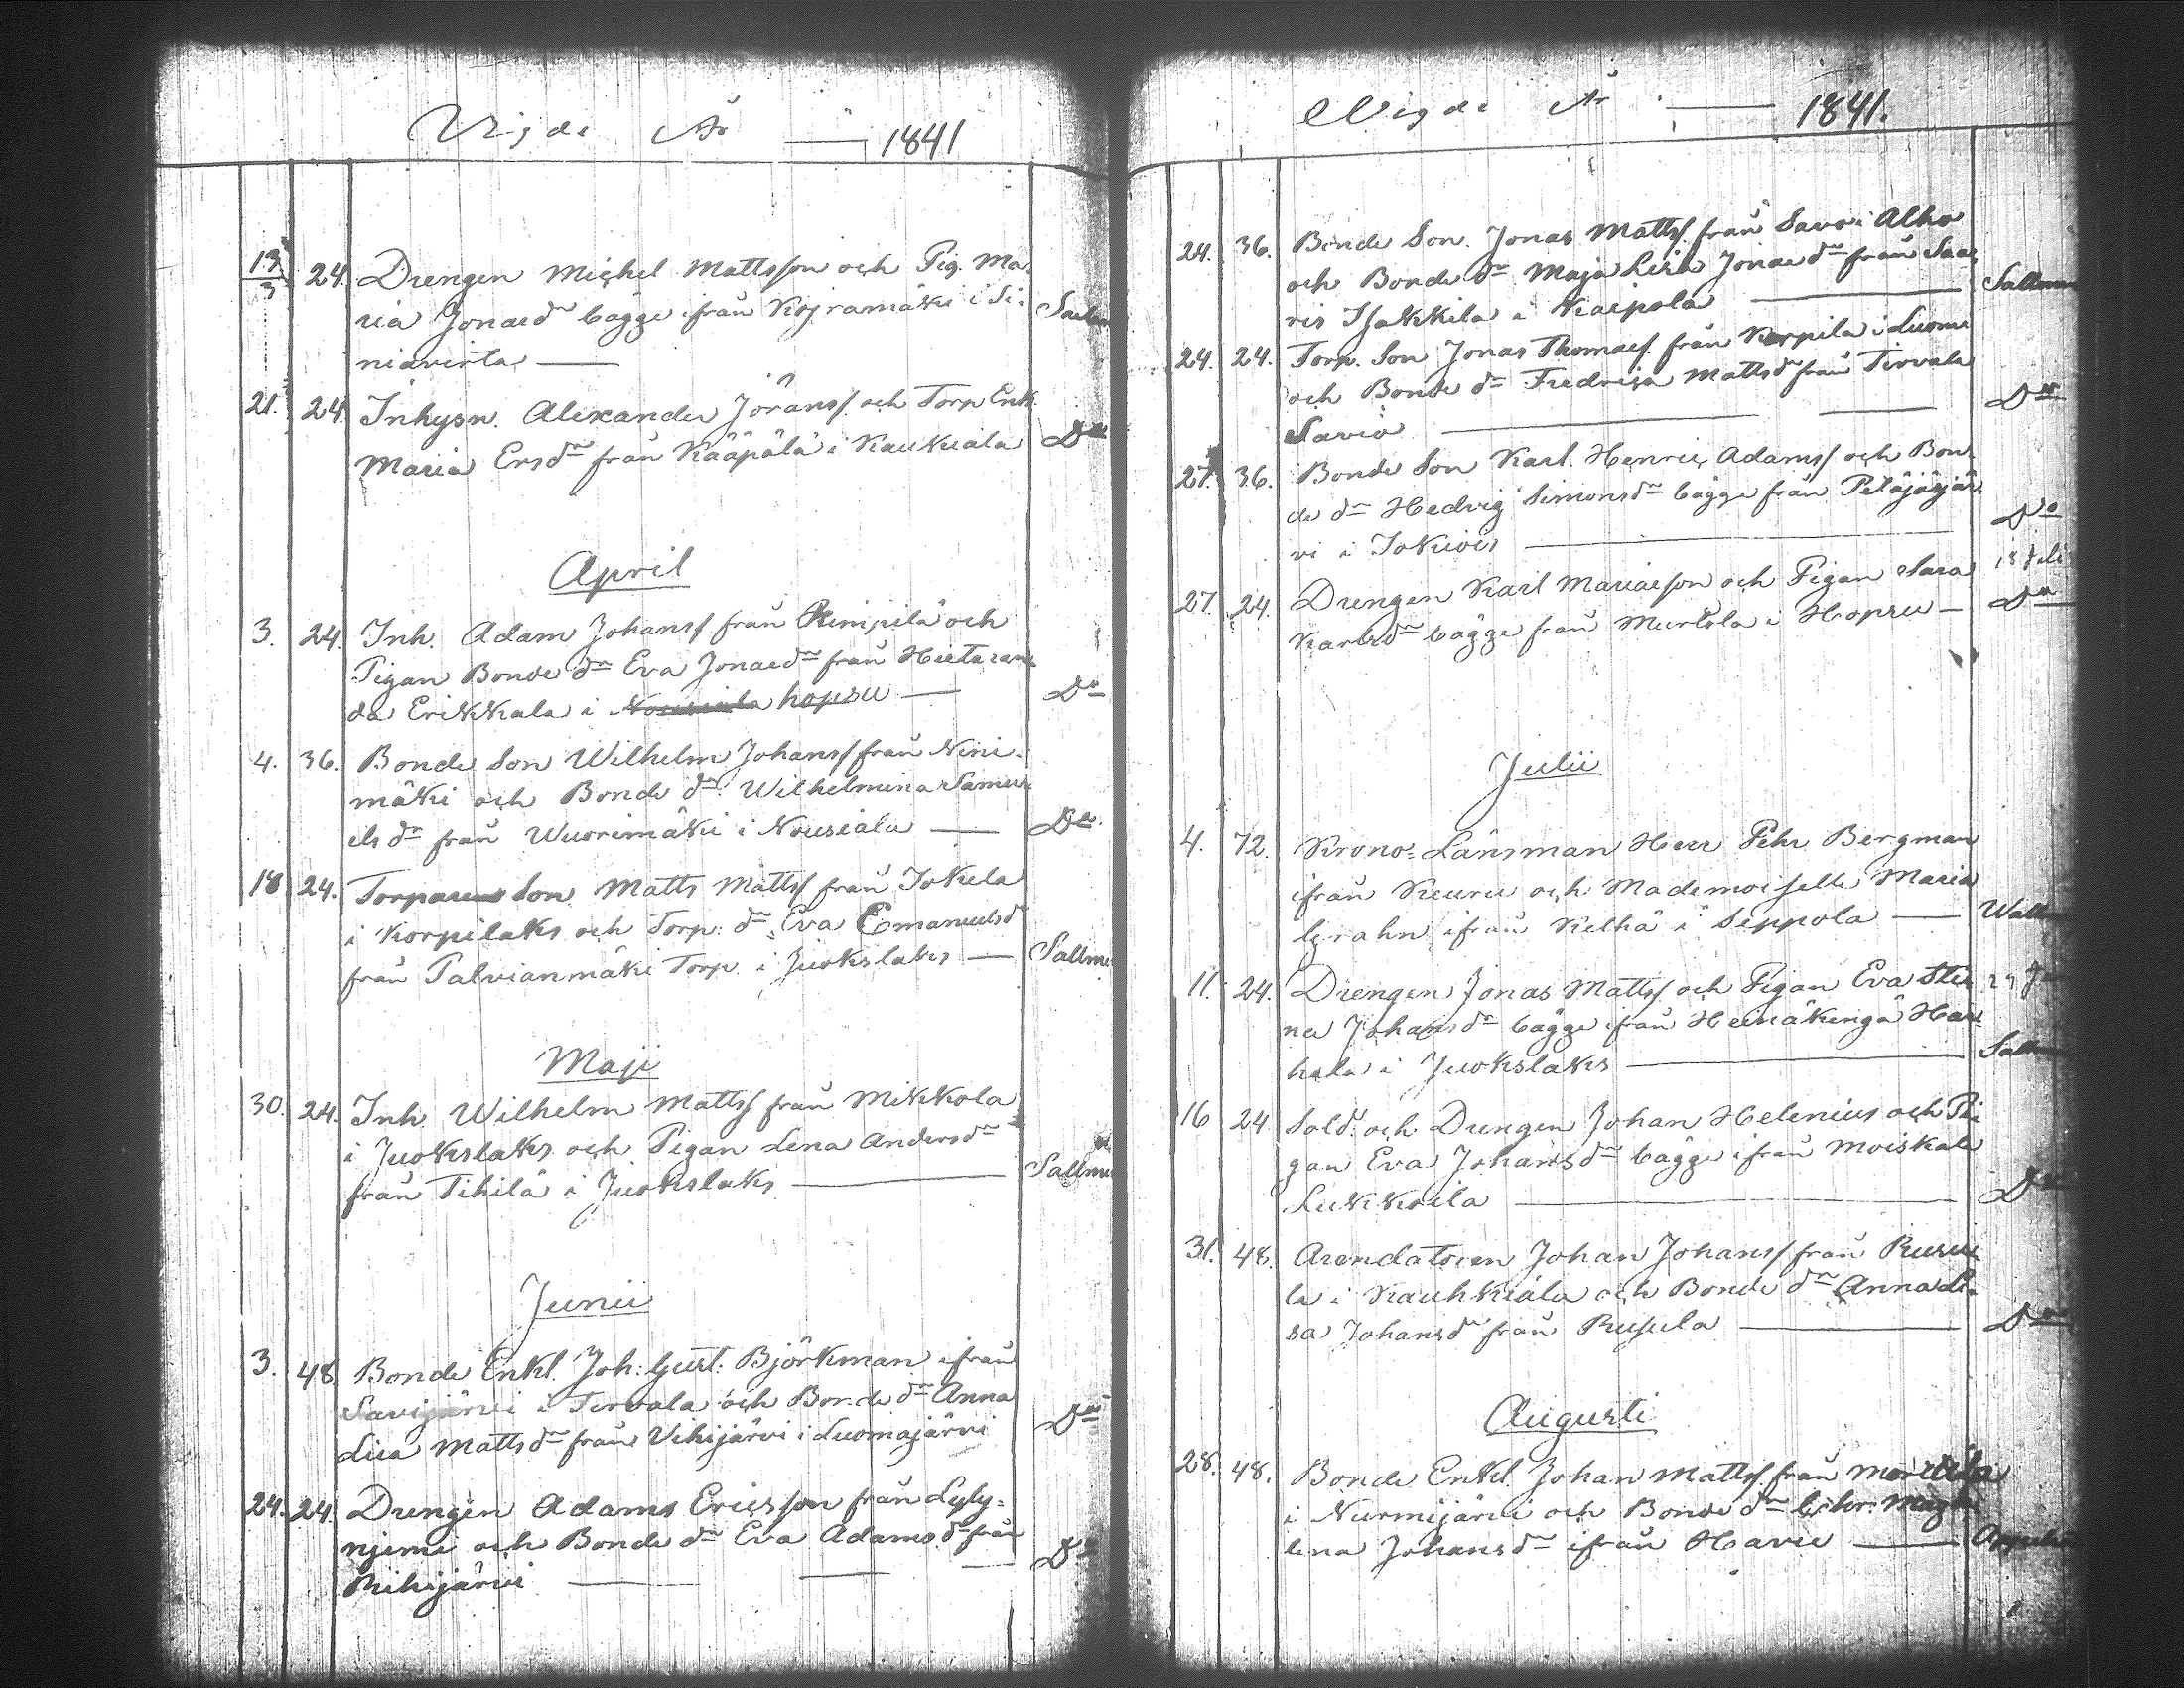 Vigde År — 1841
13/3 24. Drengen Michel Mattsson och Pig. Ma-
ria Jonaedr bägge ifrån Kojramäki i Si-
niavirta — Sallm
21. 24. Inhysn. Alexander Jöransf och Torp Enk.
Maria Ersdr från Kääpälä i Kaukiala Do
April
3. 24. Inh. Adam Johansf från Rimpilä och
Pigan Bonde dr Eva Jonaedr från Hietaran
da Erikkala i hopsu — Do
4. 36. Bonde Son Wilhelm Johansf från Nini-
mäki och Bonde dr Wilhelmina Samu-
els dr från Wuorimäki i Nousiala — Do.
18 24. Torparens Son Matts Mattsf från Jokela
i Korpilaks och Torp: dr Eva Emanuelsd
från Palvianmäki Torp i Juokslaks — Sallm
Maji
30. 24. Inh Wilhelm Mattsf från Mikkola
i Juokslaks och Pigan Lena Andersdr
från Tihilä i Juokslaks — Sallm
Junii
3. 48 Bonde Enkl. Joh: Gust: Björkman ifrån
Savijärvi i Tirvola och Bonde dr Anna
Lisa Mattsdr från Vihijärvi i Luomajärvi Do
24. 24. Drengen Adams Ericsson från Lyly-
njemi och Bonde dr Eva Adamsdr från
Rihijärvi — Do
Vigde År — 1841.
24. 36. Bonde Son Jonas Mattsf från Savoi Alho
och Bonde dr Maja Lisa Jonaedr från Saa-
ris Isakkila i Kaipola — Sallm
24. 24. Torp. Son Jonas Thomaef. från Korpila i Luome
och Bonde dr Fredrica Mattsdr från Tirvola
Savio — Do
27. 36. Bonde Son Karl Henric Adamsf och Bon
de dr Hedvig Simonsdr bägge från Petäjäjär-
vi i Jokiois — Do
27. 24. Drengen Karl Mariaeson och Pigan Sara 18 Juli
Karlsdr bägge från Murtola i Hopsu — Do
Julii
4. 72. Krono-Länsman Herr Pehr Bergman
ifrån Keuru och Mademoiselle Maria
Grahn ifrån Kelhä i Seppola — Wall
11. 24. Drengen Jonas Mattsf och Pigan Eva Sti-
na Johansdr bägge ifrån Heinäkengä Har-
hala i Juokslaks — Sallm
16 24 Sold: och Drengen Johan Helenius och Pi
gan Eva Johansdr bägge ifrån Moiskala
Lukkoila — Do
31. 48. Arendatoren Johan Johansf från Ruusi
la i Kauhkiala och Bonde dr Anna Li-
sa Johansdr från Rusula — Do
Augusti
28. 48. Bonde Enkl. Johan Mattsf från
i Nurmijärvi och Bonde dr Chr: Magda
lena Johansdr ifrån Havu —